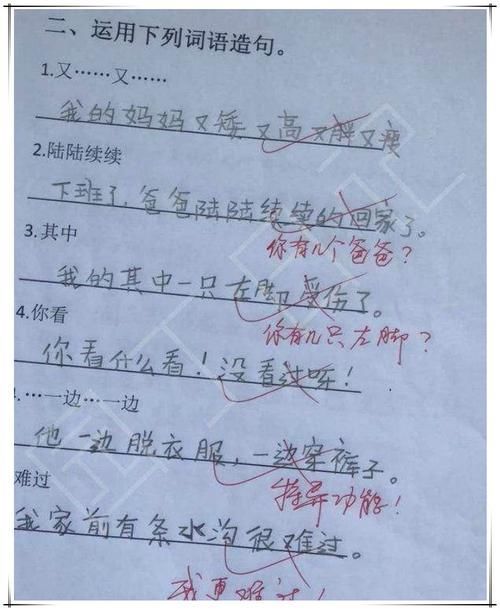 二、运用下列词语造句。
1.又……又……
我的妈妈又矮又高又胖又瘦
2.陆陆续续
下班了,爸爸陆陆续续的回家了。
你有几个爸爸?
3.其中
我的其中一只左脚受伤了。
你有几只左脚?
4.你看
你看什么看!没看过呀!
…一边…一边
他一边脱衣服,一边穿裤子。
特异功能!
难过
我家前有条水沟很难过。
我更难过!